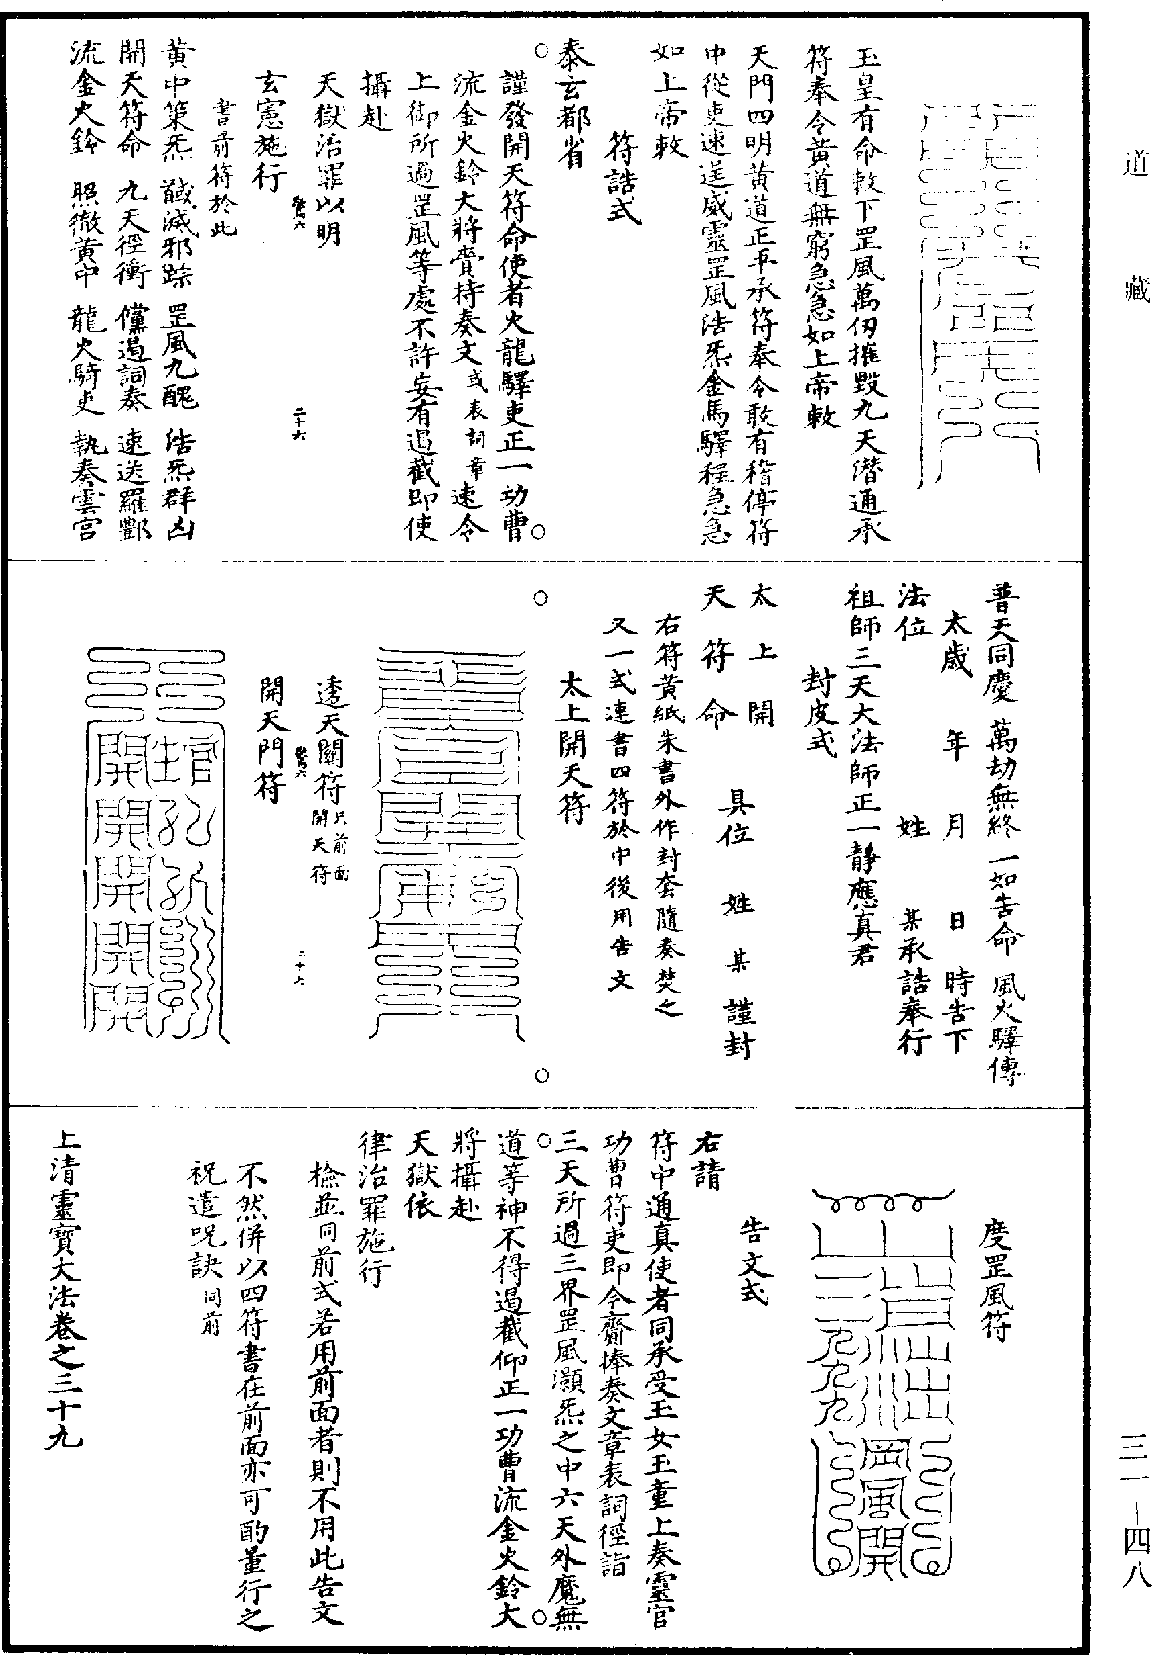 道藏
玉皇有命敕下罡風萬仞摧毀九天潛通承
符奉令黃道無窮急急如上帝敕
天門四明黃道正平承符奉令敢有稽停符
中從吏速送威靈罡風浩炁金馬驛程急急
如上帝敕
符誥式
泰玄都省
謹發開天符命使者火龍驛吏正一功曹
流金火鈴大將賫持奏文或表詞章速令
上御所過罡風等處不許妄有遏截即使
攝赴
天獄治罪以明
玄憲施行
書前符於此
黃中策炁 馘滅邪踪 罡風九醜 浩炁群凶
開天符命 九天徑衝 儻遏詞奏 速送羅酆
流金火鈴 照徹黃中 龍火騎吏 執奏雲宮
二十六
普天同慶 萬劫無終 一如告命 風火驛傳
太歲 年 月 日 時告下
法位 姓 某承誥奉行
祖師三天大法師正一靜應真君
封皮式
太上開
天符命 具位 姓 某 謹封
右符黃紙朱書外作封套隨奏焚之
又一式連書四符於中後用告文
太上開天符
透天關符只前面開天符
開天門符
二十七
度罡風符
告文式
右請
符中通真使者同承受玉女玉童上奏靈官
功曹符吏即今齎捧奏文章表詞徑詣
三天所過三界罡風灝炁之中六天外魔無
道等神不得遏截仰正一功曹流金火鈴大
將攝赴
天獄依
律治罪施行
檢並同前式若用前面者則不用此告文
不然併以四符書在前面亦可酌量行之
祝遣呪訣同前
上清靈寶大法卷之三十九
三一－四八